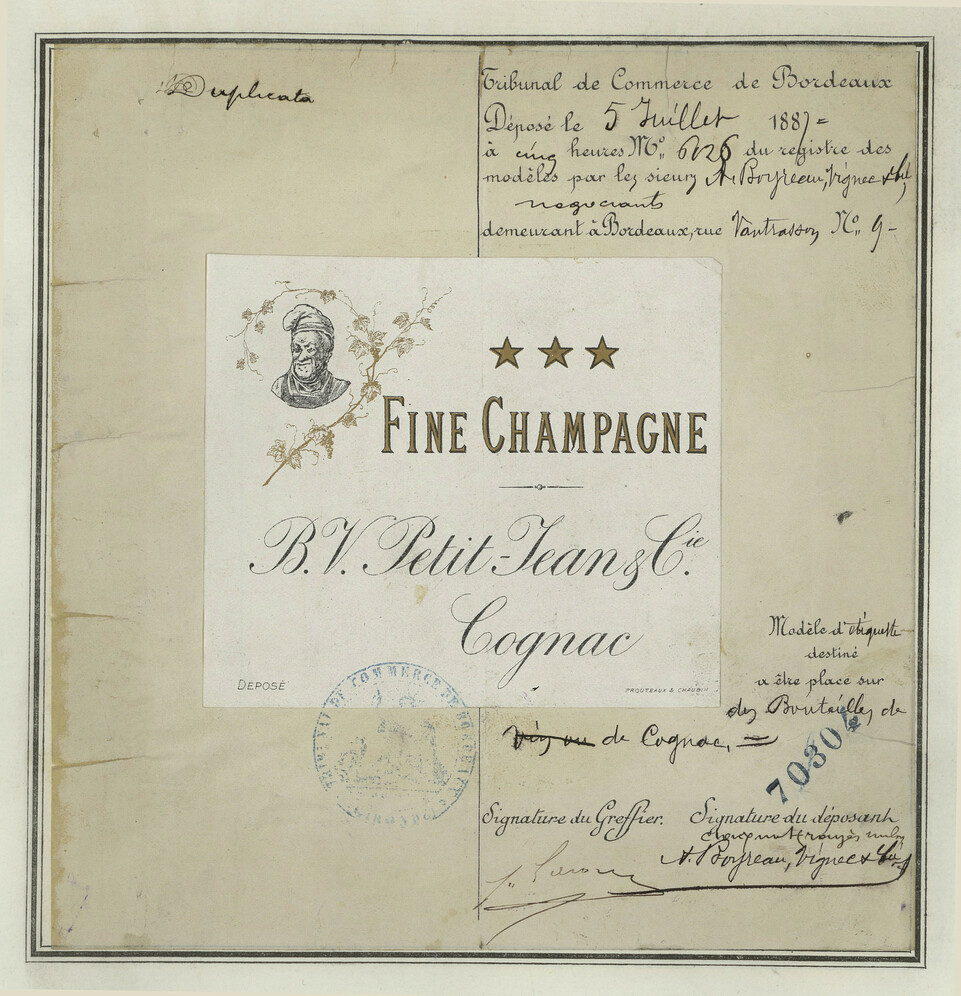 Duplicata
Tribunal de Commerce de Bordeaux
Déposé le 5 Juillet 1887=
à cinq heures No. 6026 du registre des
modèles par les sieurs A. Boyreau, Vignec & Cie
negociants
demeurant à Bordeaux, rue Vantrasson No. 9-
FINE CHAMPAGNE
B.V. Petit-Jean & Cie.
Cognac
DÉPOSÉ
PROUTEAUX & CHAUBIN
Modèle d'étiquette
destiné
a être placé sur
des Bouteilles de
de Cognac.=
70304
TRIBUNAL DE COMMERCE DE BORDEAUX
GIRONDE
Signature du Greffier. Signature du déposant
A. Boyreau, Vignec & Cie